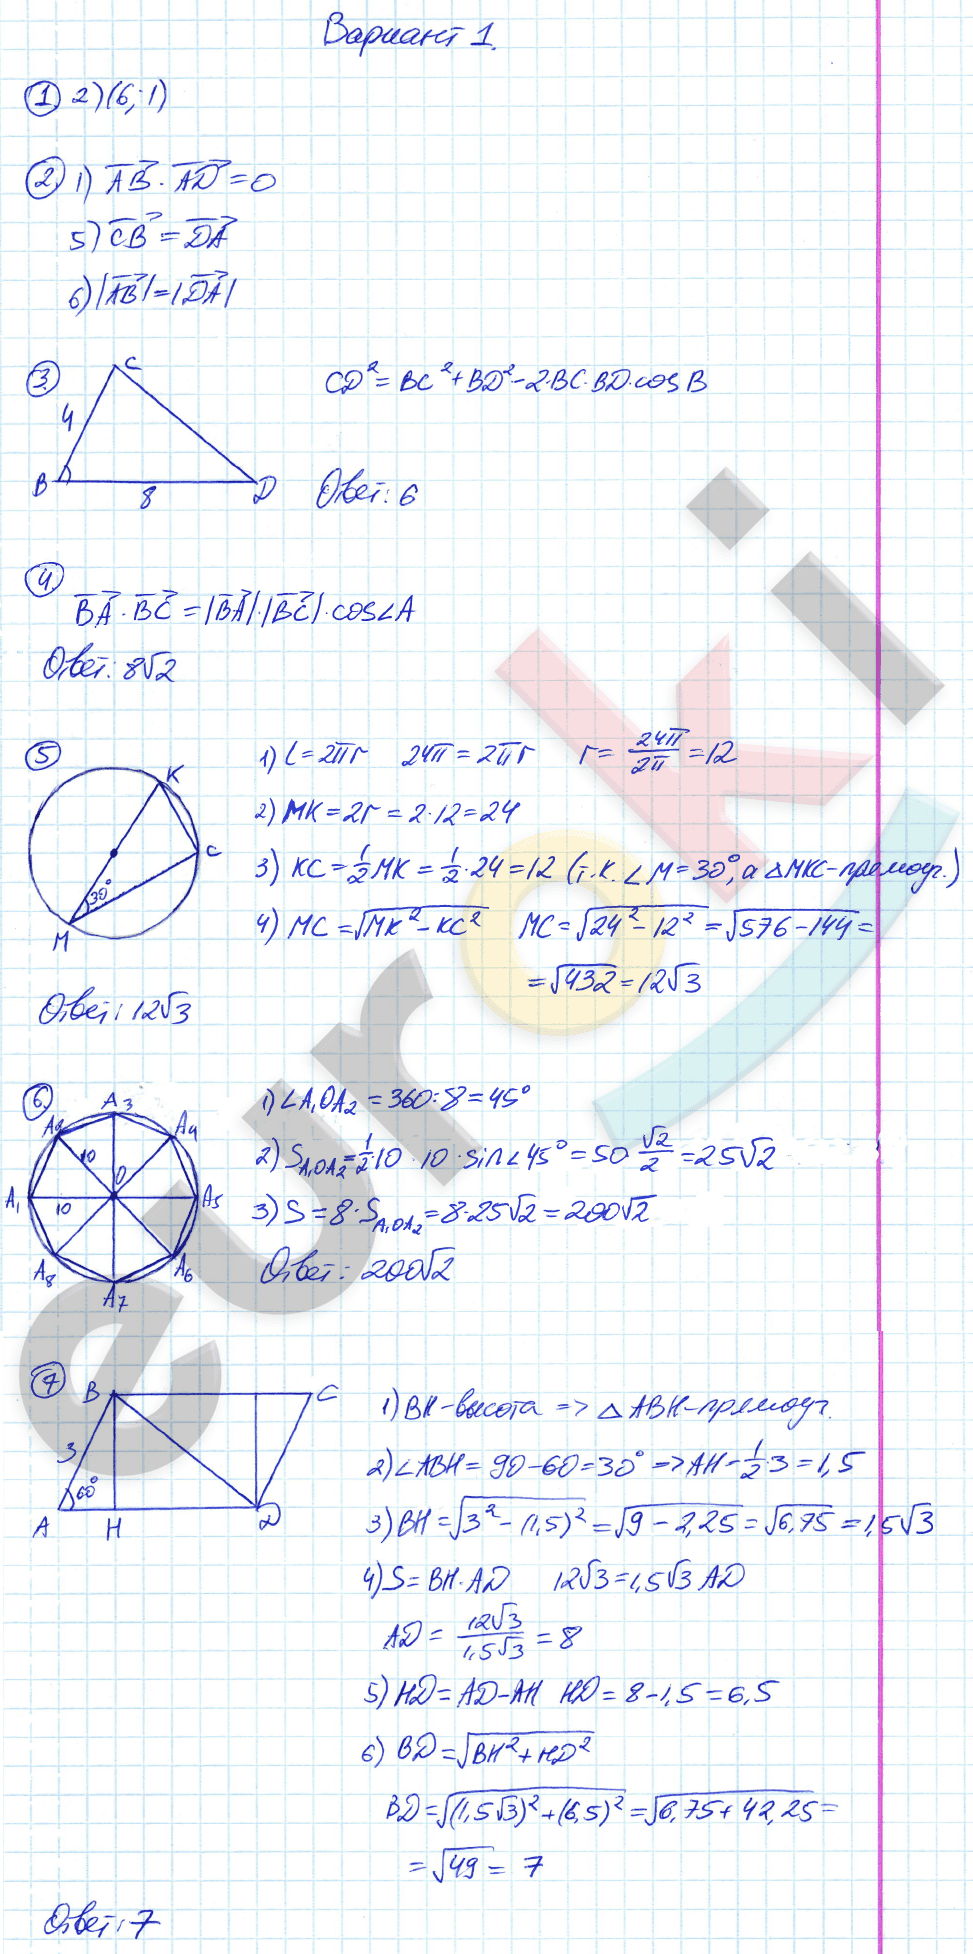 Вариант 1.
1. 2) (6; 1)
2. 1) AB · AD = 0
5) CB = DA
6) |AB| = |DA|
3. C
4
B 8 D
CD² = BC² + BD² - 2·BC·BD·cos B
Ответ: 6
4.
BA · BC = |BA|·|BC|·cos∠A
Ответ: 8√2
5
K
C
30°
M
1) C = 2πr 24π = 2πr r = 24π/2π = 12
2) MK = 2r = 2·12 = 24
3) KC = 1/2 MK = 1/2·24 = 12 (т.к. ∠M = 30°, а △MKC - прямоуг.)
4) MC = √(MK² - KC²) MC = √(24² - 12²) = √(576 - 144) =
= √432 = 12√3
Ответ: 12√3
6.
A3
A2 A4
10 O
A1 10 A5
A8 A6
A7
1) ∠A₁OA₂ = 360:8 = 45°
2) S_A₁OA₂ = 1/2·10·10·sin∠45° = 50 √2/2 = 25√2
3) S = 8·S_A₁OA₂ = 8·25√2 = 200√2
Ответ: 200√2
7
B C
3
60°
A H D
1) BH - высота => △ABH - прямоуг.
2) ∠ABH = 90 - 60 = 30° => AH - 1/2·3 = 1,5
3) BH = √(3² - (1,5)²) = √(9 - 2,25) = √6,75 = 1,5√3
4) S = BH·AD 12√3 = 1,5√3 AD
AD = 12√3/1,5√3 = 8
5) HD = AD - AH HD = 8 - 1,5 = 6,5
6) BD = √(BH² + HD²)
BD = √((1,5√3)² + (6,5)²) = √(6,75 + 42,25) =
= √49 = 7
Ответ: 7
euroki